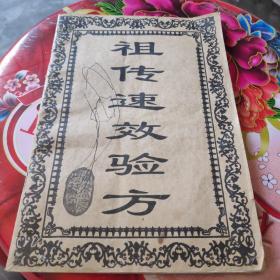 祖传速效验方